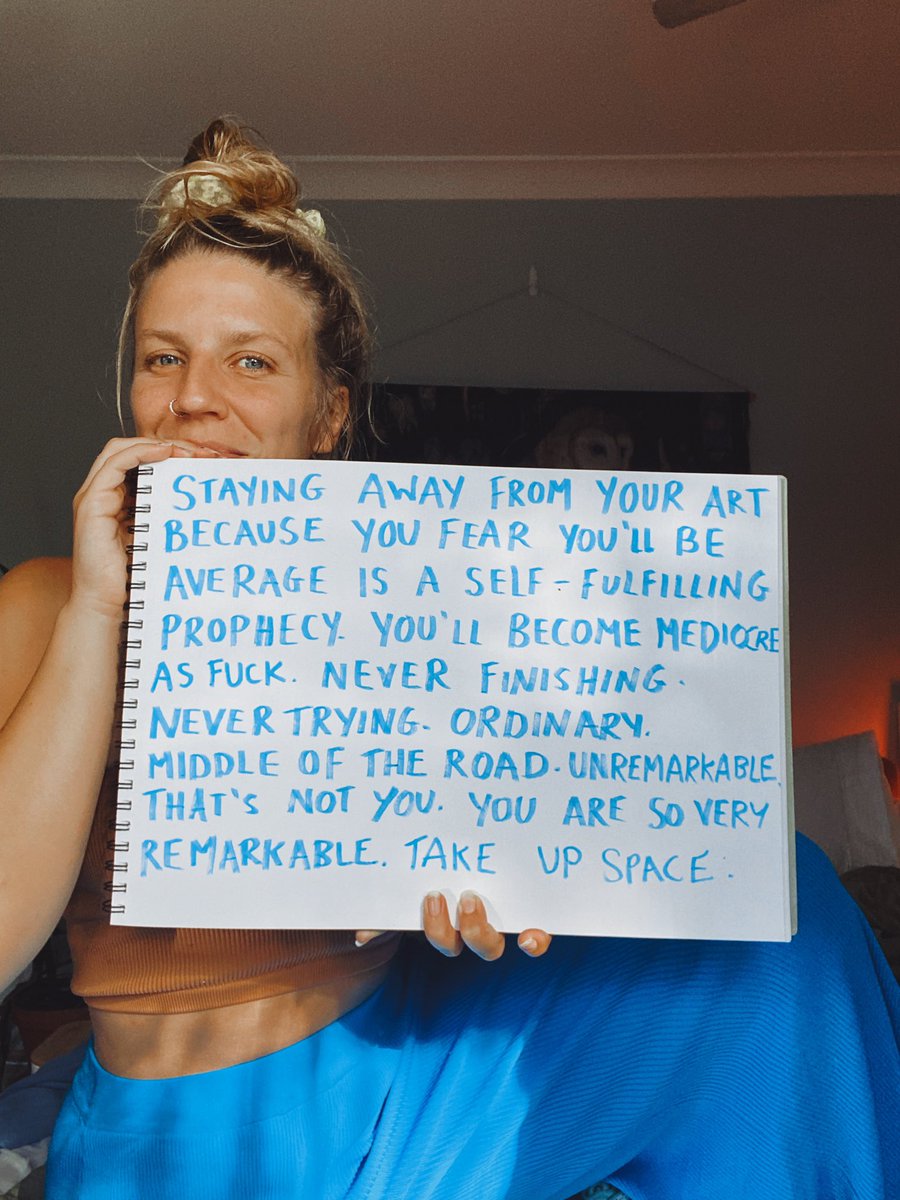 STAYING AWAY FROM YOUR ART
BECAUSE YOU FEAR YOU'LL BE
AVERAGE IS A SELF-FULFILLING
PROPHECY. YOU'LL BECOME MEDIOCRE
AS FUCK. NEVER FINISHING.
NEVER TRYING. ORDINARY.
MIDDLE OF THE ROAD. UNREMARKABLE.
THAT'S NOT YOU. YOU ARE SO VERY
REMARKABLE. TAKE UP SPACE.